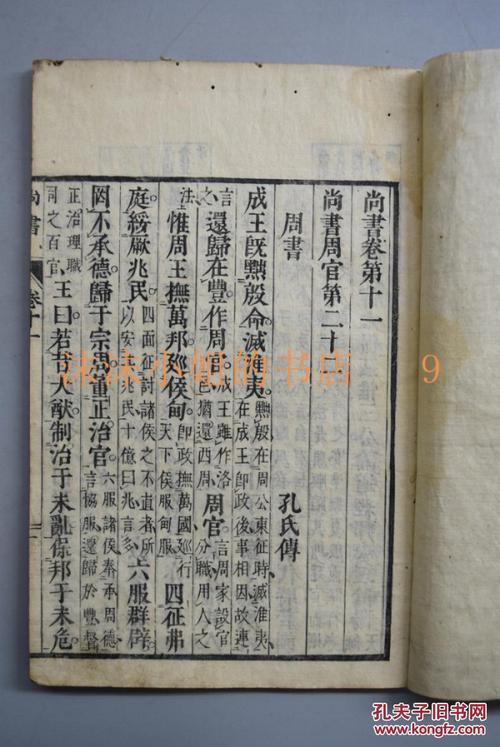 尚書卷第十一
尚書周官第二十
周書
孔氏傳
成王既黜殷命滅淮夷
黜殷在周公東征時滅淮夷
在成王即政後事相因故連
言
之
還歸在豐作周官
成王雖作洛
邑猶還西周
周官
言周家設官
分職用人之
法
惟周王撫萬邦廵侯甸
即政撫萬國廵行
天下侯服甸服
四征弗
庭綏厥兆民
四面征討諸侯之不直者所
以安其兆民十億曰兆言多
六服群辟
罔不承德歸于宗周董正治官
六服諸侯奉承周德
言協服還歸於豐督
正治理職
司之百官
王曰若昔大猷制治于未亂保邦于未危
尚書
卷十一
一
沫沫小姐的书店
9
孔夫子旧书网
www.kongfz.com